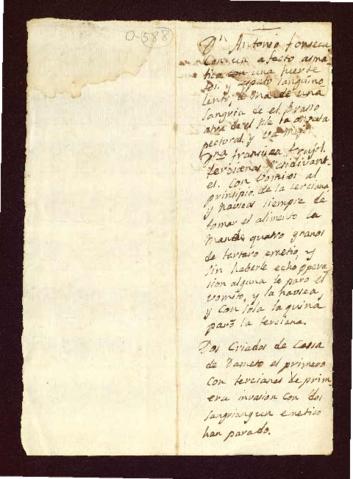 0-588
Dn Antonio fonseca
con un afecto asma
tico con una fuerte
tos, y esputo sanguino
lento, toma de una
sangria de el Braso
pectoral, y
francisca
el. Con Vomios al
principio de la terciana
y nausea siempre de
tomar el alimento la
mande quatro granos
de tartaro emetio, y
sin haberle echo opera
sion alguna le paro el
vomito, y la nausea
y con sola la quina
paro la terciana.
Dos Criados de Cassa
de el primero
con tercianas de prim
era invasion con dos
sangrias y un emetico
han parado.